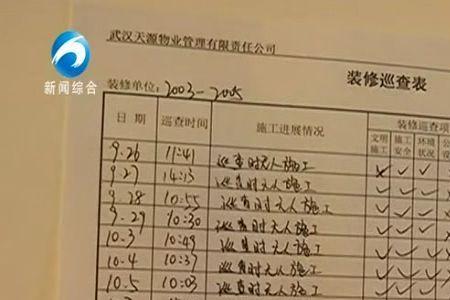 武汉天源物业管理有限责任公司
新闻综合
装修巡查表
装修单位：2003-2005
日期 巡查时间 施工进展情况 装修巡查项
文明施工 施工安全 环境状况
9.26 11:41 巡查时无人施工 ✗ ✓ ✓
9.27 14:13 巡查时无人施工 ✓ ✓ ✓
9.28 10:55 巡查时无人施工 ✓ ✓ ✓
9.29 10:30 巡查时无人施工 ✓ ✓ ✓
10.3 10:49 巡查时无人施工 ✓ ✓ ✓
10.4 10:37 巡查时无人施工 ✓ ✓ ✓
10.5 10:03 巡查时无人施工 ✓ ✓ ✓